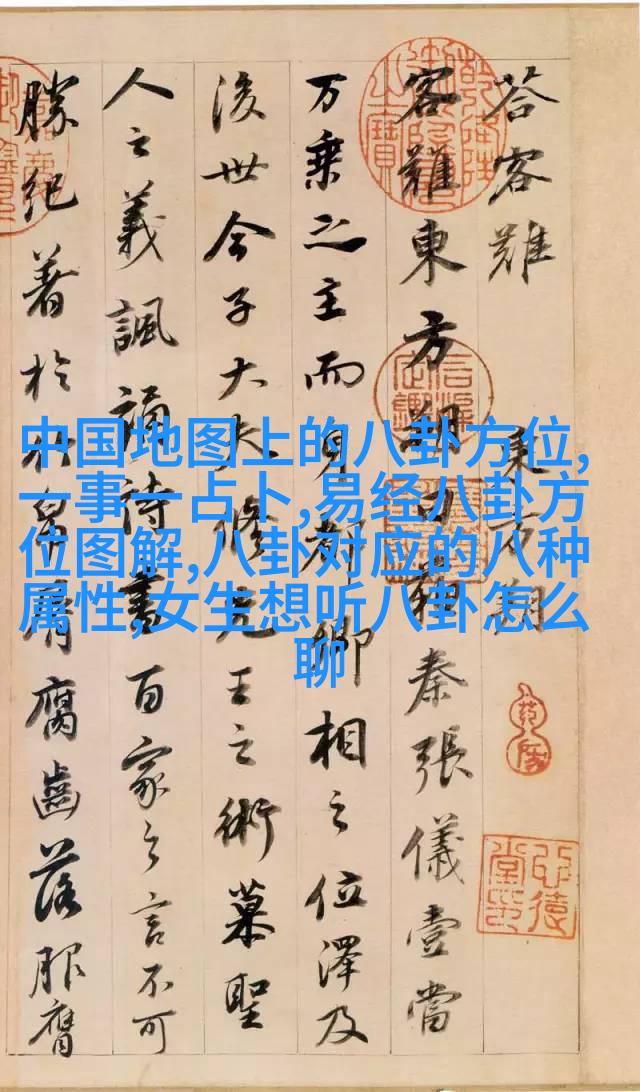 荅客難 東方朔
客難東方朔曰蘇秦張儀壹當
万乗之主而身都卿相之位澤及
後世今子大夫修先王之術慕聖
人之義諷誦詩書百家之言不可
勝紀著於竹帛脣腐齒落服膺
中国地图上的八卦方位,
一事一占卜,易经八卦方
位图解,八卦对应的八种
属性,女生想听八卦怎么
聊